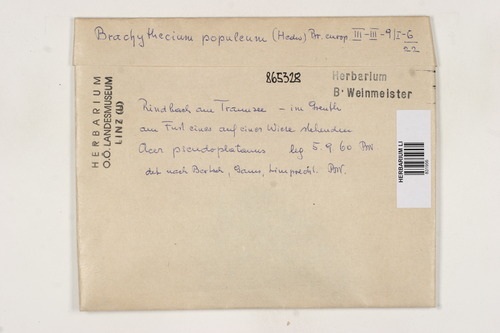 Brachythecium populeum (Hedw) Br. europ. III-III-9/I-6
22
865328
Herbarium
B. Weinmeister
HERBARIUM
O.Ö. LANDESMUSEUM
LINZ (U)
Rindbach am Traunsee – im Greuth
am Fuß eines auf einer Wiese stehenden
Acer pseudoplatanus leg 5. 9. 60 BW
det nach Bertsch, Gams, Limpricht. BW.
HERBARIUM LI